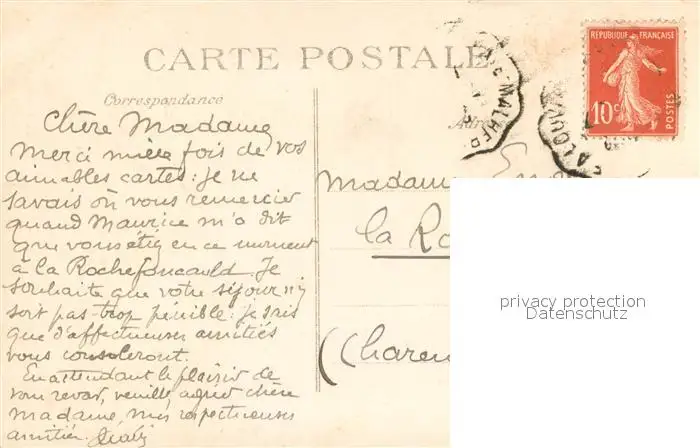 CARTE POSTALE
Correspondance
RÉPUBLIQUE FRANÇAISE
10c
Chère Madame
Merci mille fois de vos
aimables cartes : je ne
savais où vous remercier
quand Maurice m'a dit
que vous étiez en ce moment
à la Rochefoucauld. Je
souhaite que votre séjour n'y
soit pas trop pénible : je sais
que d'affectueuses amitiés
vous consoleront.
En attendant le plaisir de
vous revoir, veuillez agréer chère
Madame, mes respectueuses
amitiés.
Madam
la Ro
(Charen
privacy protection
Datenschutz